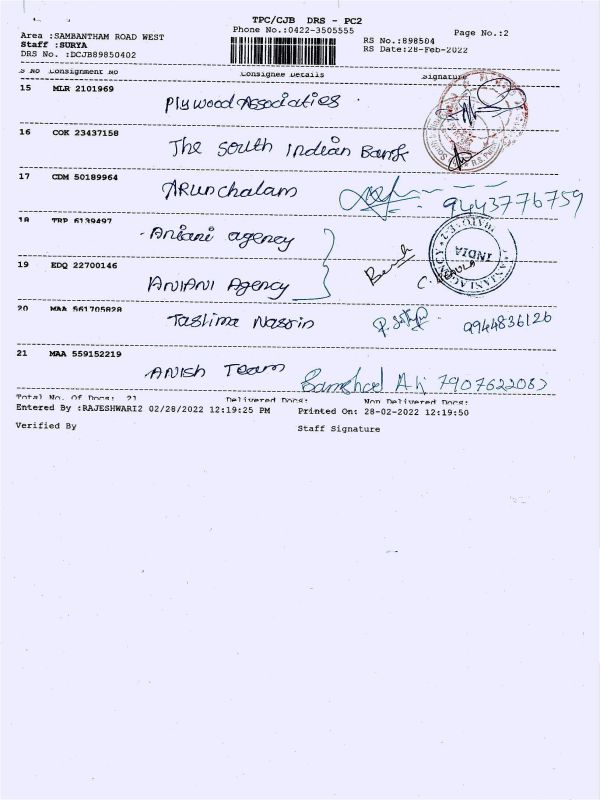 TPC/CJB DRS - PC2
Phone No.:0422-3505555
Page No.:2
Area :SAMBANTHAM ROAD WEST
Staff :SURYA
DRS No. :DCJB89850402
RS No.:898504
RS Date:28-Feb-2022
S No Consignment No Consignee Details Signature
15 MLR 2101969
Plywood Associaties
16 COK 23437158
The South Indian Bank
17 CDM 50189964
Arunchalam
9443776759
18 TRP 6139497
Anjani agency
INDIA
19 EDQ 22700146
ANJANI Agency
20 MAA 561705828
Taslima Nasrin
9944836126
21 MAA 559152219
ANISH Team
Total No. Of Docs: 21 Delivered Docs: Non Delivered Docs:
Entered By :RAJESHWARI2 02/28/2022 12:19:25 PM
Printed On: 28-02-2022 12:19:50
Verified By
Staff Signature